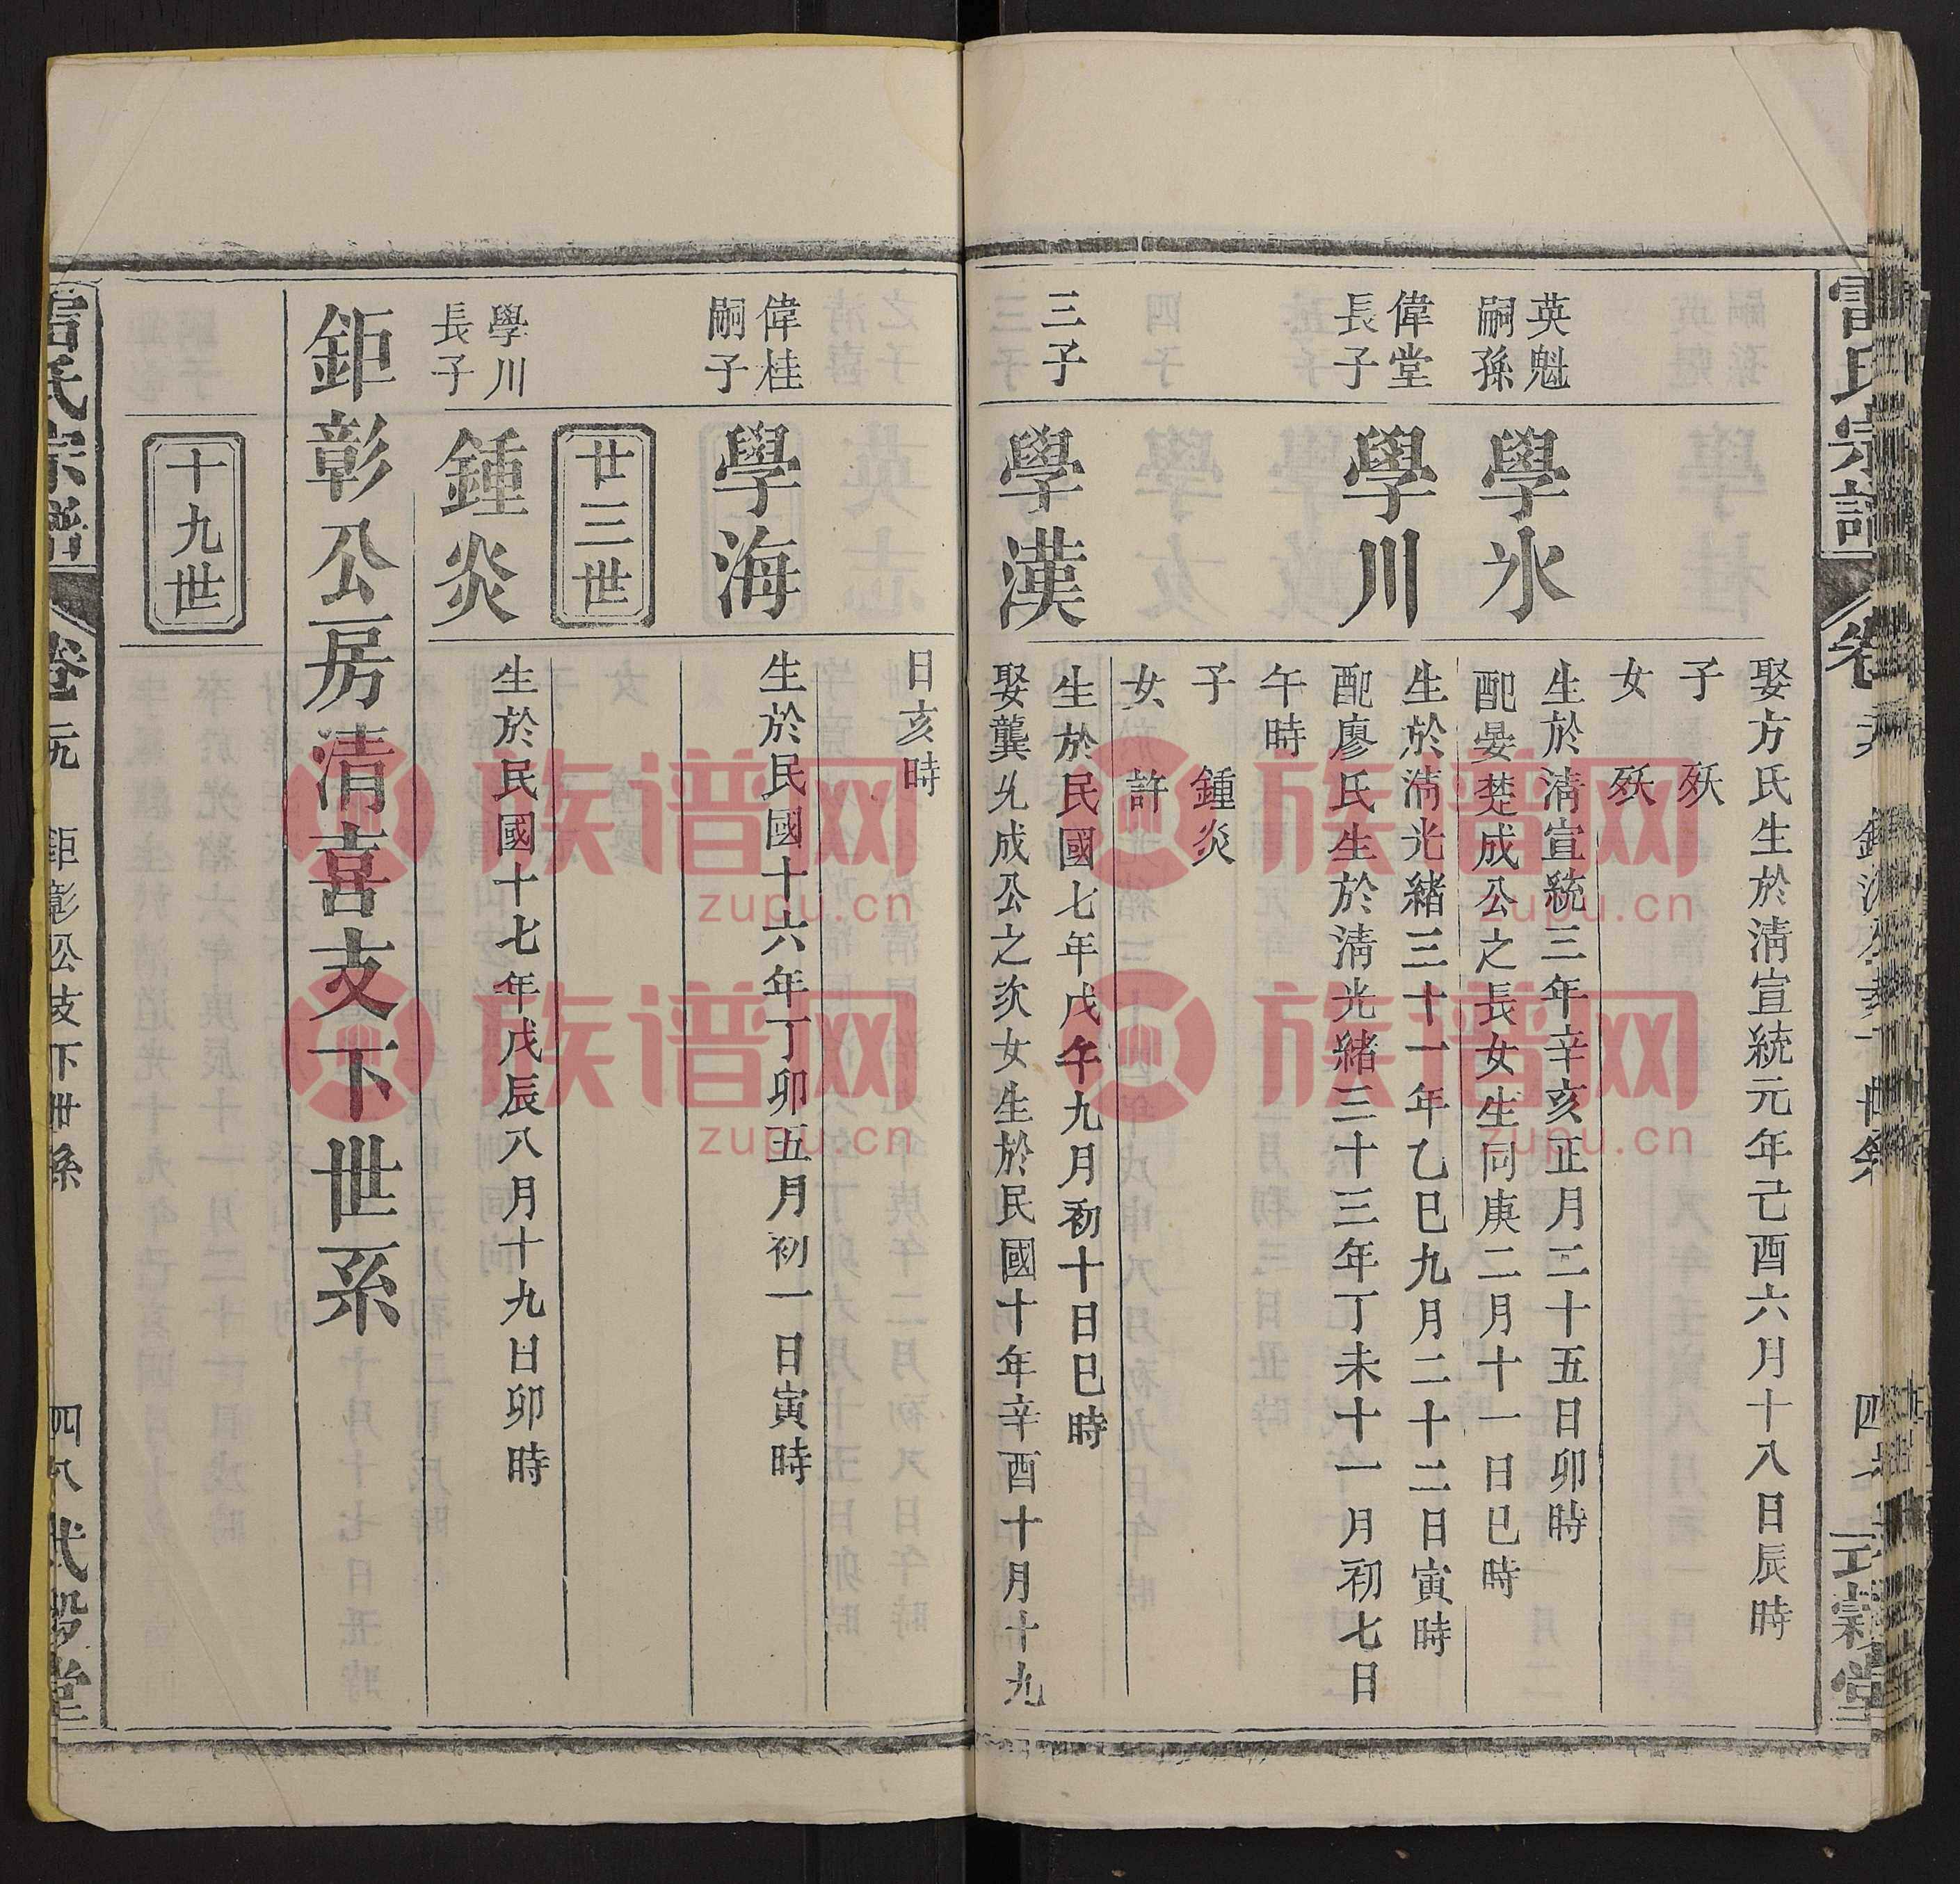 雷氏宗譜
四七
式穀堂
娶方氏生於淸宣統元年己酉六月十八日辰時
子 殀
女 殀
英魁
嗣孫
學氷
生於淸宣統三年辛亥正月二十五日卯時
配晏楚成公之長女生同庚二月十一日巳時
偉堂
長子
學川
生於淸光緒三十一年乙巳九月二十二日寅時
配廖氏生於淸光緒三十三年丁未十一月初七日
午時
子 鍾炎
女 許
三子
學漢
生於民國七年戊午九月初十日巳時
娶龔兆成公之次女生於民國十年辛酉十月十九
日亥時
偉桂
嗣子
學海
生於民國十六年丁卯五月初一日寅時
廿三世
學川
長子
鍾炎
生於民國十七年戊辰八月十九日卯時
鉅彰公房清喜支下世系
十九世
雷氏宗譜
卷元
鉅彰公支下世系
四八
式穀堂
族谱网
zupu.cn
族谱网
zupu.cn
族谱网
zupu.cn
族谱网
zupu.cn